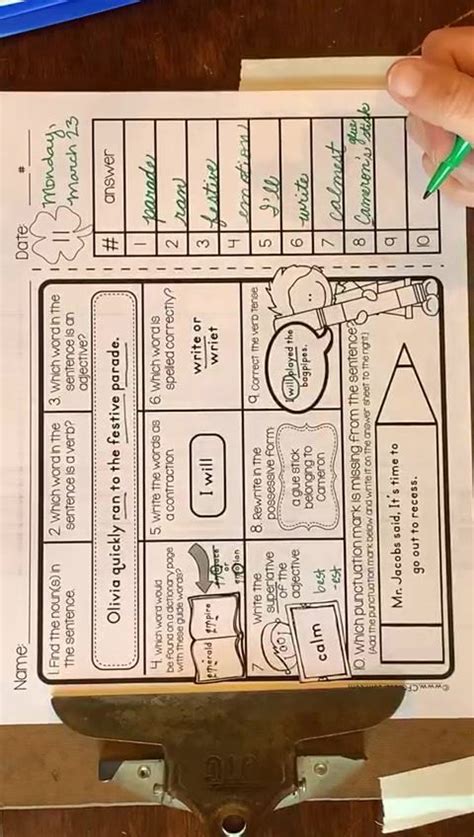 Name:
Date:
#
11
Monday,
March 23
1. Find the noun(s) in
the sentence.
2. Which word in the
sentence is a verb?
3. Which word in the
sentence is an
adjective?
Olivia quickly ran to the festive parade.
4. Which word would
be found on a dictionary page
with these guide words?
emerald empire
or
emotion
5. Write the words as
a contraction.
I will
6. Which word is
spelled correctly?
write or
wriet
7. Write the
superlative
of the
adjective.
calm
best
-est
8. Rewrite in the
possessive form.
a glue stick
belonging to
cameron
9. Correct the verb tense.
I will played the
bagpipes.
10. Which punctuation mark is missing from the sentence?
(Add the punctuation mark below and write it on the answer sheet to the right.)
Mr. Jacobs said, It's time to
go out to recess.
# answer
1 parade
2 ran
3 festive
4 emotion
5 I'll
6 write
7 calmest
8 Cameron's glue stick
9
10